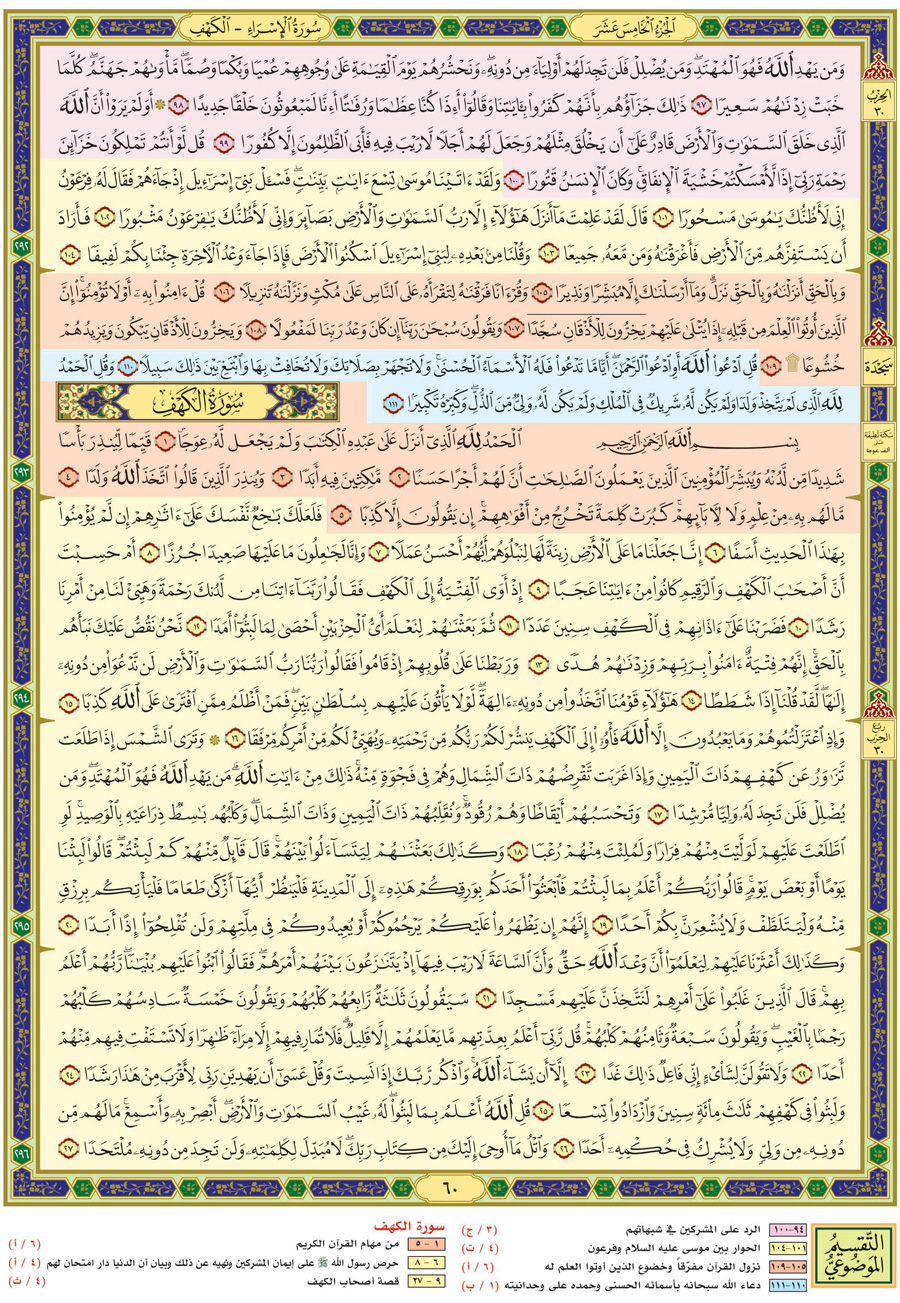 الجُزْءُ الخَامِسَ عَشَرَ
سُورَةُ الإِسْرَاءِ - الكَهْفِ
وَمَن يَهْدِ ٱللَّهُ فَهُوَ ٱلْمُهْتَدِ ۖ وَمَن يُضْلِلْ فَلَن تَجِدَ لَهُمْ أَوْلِيَآءَ مِن دُونِهِۦ ۖ وَنَحْشُرُهُمْ يَوْمَ ٱلْقِيَـٰمَةِ عَلَىٰ وُجُوهِهِمْ عُمْيًا وَبُكْمًا وَصُمًّا ۖ مَّأْوَىٰهُمْ جَهَنَّمُ ۖ كُلَّمَا
خَبَتْ زِدْنَـٰهُمْ سَعِيرًا ٩٧ ذَٰلِكَ جَزَآؤُهُم بِأَنَّهُمْ كَفَرُوا۟ بِـَٔايَـٰتِنَا وَقَالُوٓا۟ أَءِذَا كُنَّا عِظَـٰمًا وَرُفَـٰتًا أَءِنَّا لَمَبْعُوثُونَ خَلْقًا جَدِيدًا ٩٨ ۞ أَوَلَمْ يَرَوْا۟ أَنَّ ٱللَّهَ
ٱلَّذِى خَلَقَ ٱلسَّمَـٰوَٰتِ وَٱلْأَرْضَ قَادِرٌ عَلَىٰٓ أَن يَخْلُقَ مِثْلَهُمْ وَجَعَلَ لَهُمْ أَجَلًا لَّا رَيْبَ فِيهِ فَأَبَى ٱلظَّـٰلِمُونَ إِلَّا كُفُورًا ٩٩ قُل لَّوْ أَنتُمْ تَمْلِكُونَ خَزَآئِنَ
رَحْمَةِ رَبِّىٓ إِذًا لَّأَمْسَكْتُمْ خَشْيَةَ ٱلْإِنفَاقِ ۚ وَكَانَ ٱلْإِنسَـٰنُ قَتُورًا ١٠٠ وَلَقَدْ ءَاتَيْنَا مُوسَىٰ تِسْعَ ءَايَـٰتٍۭ بَيِّنَـٰتٍ ۖ فَسْـَٔلْ بَنِىٓ إِسْرَٰٓءِيلَ إِذْ جَآءَهُمْ فَقَالَ لَهُۥ فِرْعَوْنُ
إِنِّى لَأَظُنُّكَ يَـٰمُوسَىٰ مَسْحُورًا ١٠١ قَالَ لَقَدْ عَلِمْتَ مَآ أَنزَلَ هَـٰٓؤُلَآءِ إِلَّا رَبُّ ٱلسَّمَـٰوَٰتِ وَٱلْأَرْضِ بَصَآئِرَ وَإِنِّى لَأَظُنُّكَ يَـٰفِرْعَوْنُ مَثْبُورًا ١٠٢ فَأَرَادَ
أَن يَسْتَفِزَّهُم مِّنَ ٱلْأَرْضِ فَأَغْرَقْنَـٰهُ وَمَن مَّعَهُۥ جَمِيعًا ١٠٣ وَقُلْنَا مِنۢ بَعْدِهِۦ لِبَنِىٓ إِسْرَٰٓءِيلَ ٱسْكُنُوا۟ ٱلْأَرْضَ فَإِذَا جَآءَ وَعْدُ ٱلْـَٔاخِرَةِ جِئْنَا بِكُمْ لَفِيفًا ١٠٤
وَبِٱلْحَقِّ أَنزَلْنَـٰهُ وَبِٱلْحَقِّ نَزَلَ ۗ وَمَآ أَرْسَلْنَـٰكَ إِلَّا مُبَشِّرًا وَنَذِيرًا ١٠٥ وَقُرْءَانًا فَرَقْنَـٰهُ لِتَقْرَأَهُۥ عَلَى ٱلنَّاسِ عَلَىٰ مُكْثٍ وَنَزَّلْنَـٰهُ تَنزِيلًا ١٠٦ قُلْ ءَامِنُوا۟ بِهِۦٓ أَوْ لَا تُؤْمِنُوٓا۟ ۚ إِنَّ
ٱلَّذِينَ أُوتُوا۟ ٱلْعِلْمَ مِن قَبْلِهِۦٓ إِذَا يُتْلَىٰ عَلَيْهِمْ يَخِرُّونَ لِلْأَذْقَانِ سُجَّدًا ١٠٧ وَيَقُولُونَ سُبْحَـٰنَ رَبِّنَآ إِن كَانَ وَعْدُ رَبِّنَا لَمَفْعُولًا ١٠٨ وَيَخِرُّونَ لِلْأَذْقَانِ يَبْكُونَ وَيَزِيدُهُمْ
خُشُوعًا ۩ ١٠٩ قُلِ ٱدْعُوا۟ ٱللَّهَ أَوِ ٱدْعُوا۟ ٱلرَّحْمَـٰنَ ۖ أَيًّا مَّا تَدْعُوا۟ فَلَهُ ٱلْأَسْمَآءُ ٱلْحُسْنَىٰ ۚ وَلَا تَجْهَرْ بِصَلَاتِكَ وَلَا تُخَافِتْ بِهَا وَٱبْتَغِ بَيْنَ ذَٰلِكَ سَبِيلًا ١١٠ وَقُلِ ٱلْحَمْدُ
لِلَّهِ ٱلَّذِى لَمْ يَتَّخِذْ وَلَدًا وَلَمْ يَكُن لَّهُۥ شَرِيكٌ فِى ٱلْمُلْكِ وَلَمْ يَكُن لَّهُۥ وَلِىٌّ مِّنَ ٱلذُّلِّ ۖ وَكَبِّرْهُ تَكْبِيرًۢا ١١١
سُورَةُ الكَهْفِ
بِسْمِ ٱللَّهِ ٱلرَّحْمَـٰنِ ٱلرَّحِيمِ ٱلْحَمْدُ لِلَّهِ ٱلَّذِىٓ أَنزَلَ عَلَىٰ عَبْدِهِ ٱلْكِتَـٰبَ وَلَمْ يَجْعَل لَّهُۥ عِوَجَا ۜ ١ قَيِّمًا لِّيُنذِرَ بَأْسًا
شَدِيدًا مِّن لَّدُنْهُ وَيُبَشِّرَ ٱلْمُؤْمِنِينَ ٱلَّذِينَ يَعْمَلُونَ ٱلصَّـٰلِحَـٰتِ أَنَّ لَهُمْ أَجْرًا حَسَنًا ٢ مَّـٰكِثِينَ فِيهِ أَبَدًا ٣ وَيُنذِرَ ٱلَّذِينَ قَالُوا۟ ٱتَّخَذَ ٱللَّهُ وَلَدًا ٤
مَّا لَهُم بِهِۦ مِنْ عِلْمٍ وَلَا لِـَٔابَآئِهِمْ ۚ كَبُرَتْ كَلِمَةً تَخْرُجُ مِنْ أَفْوَٰهِهِمْ ۚ إِن يَقُولُونَ إِلَّا كَذِبًا ٥ فَلَعَلَّكَ بَـٰخِعٌ نَّفْسَكَ عَلَىٰٓ ءَاثَـٰرِهِمْ إِن لَّمْ يُؤْمِنُوا۟
بِهَـٰذَا ٱلْحَدِيثِ أَسَفًا ٦ إِنَّا جَعَلْنَا مَا عَلَى ٱلْأَرْضِ زِينَةً لَّهَا لِنَبْلُوَهُمْ أَيُّهُمْ أَحْسَنُ عَمَلًا ٧ وَإِنَّا لَجَـٰعِلُونَ مَا عَلَيْهَا صَعِيدًا جُرُزًا ٨ أَمْ حَسِبْتَ
أَنَّ أَصْحَـٰبَ ٱلْكَهْفِ وَٱلرَّقِيمِ كَانُوا۟ مِنْ ءَايَـٰتِنَا عَجَبًا ٩ إِذْ أَوَى ٱلْفِتْيَةُ إِلَى ٱلْكَهْفِ فَقَالُوا۟ رَبَّنَآ ءَاتِنَا مِن لَّدُنكَ رَحْمَةً وَهَيِّئْ لَنَا مِنْ أَمْرِنَا
رَشَدًا ١٠ فَضَرَبْنَا عَلَىٰٓ ءَاذَانِهِمْ فِى ٱلْكَهْفِ سِنِينَ عَدَدًا ١١ ثُمَّ بَعَثْنَـٰهُمْ لِنَعْلَمَ أَىُّ ٱلْحِزْبَيْنِ أَحْصَىٰ لِمَا لَبِثُوٓا۟ أَمَدًا ١٢ نَّحْنُ نَقُصُّ عَلَيْكَ نَبَأَهُم
بِٱلْحَقِّ ۚ إِنَّهُمْ فِتْيَةٌ ءَامَنُوا۟ بِرَبِّهِمْ وَزِدْنَـٰهُمْ هُدًى ١٣ وَرَبَطْنَا عَلَىٰ قُلُوبِهِمْ إِذْ قَامُوا۟ فَقَالُوا۟ رَبُّنَا رَبُّ ٱلسَّمَـٰوَٰتِ وَٱلْأَرْضِ لَن نَّدْعُوَا۟ مِن دُونِهِۦٓ
إِلَـٰهًا ۖ لَّقَدْ قُلْنَآ إِذًا شَطَطًا ١٤ هَـٰٓؤُلَآءِ قَوْمُنَا ٱتَّخَذُوا۟ مِن دُونِهِۦٓ ءَالِهَةً ۖ لَّوْلَا يَأْتُونَ عَلَيْهِم بِسُلْطَـٰنٍۭ بَيِّنٍ ۖ فَمَنْ أَظْلَمُ مِمَّنِ ٱفْتَرَىٰ عَلَى ٱللَّهِ كَذِبًا ١٥
وَإِذِ ٱعْتَزَلْتُمُوهُمْ وَمَا يَعْبُدُونَ إِلَّا ٱللَّهَ فَأْوُۥٓا۟ إِلَى ٱلْكَهْفِ يَنشُرْ لَكُمْ رَبُّكُم مِّن رَّحْمَتِهِۦ وَيُهَيِّئْ لَكُم مِّنْ أَمْرِكُم مِّرْفَقًا ١٦ ۞ وَتَرَى ٱلشَّمْسَ إِذَا طَلَعَت
تَّزَٰوَرُ عَن كَهْفِهِمْ ذَاتَ ٱلْيَمِينِ وَإِذَا غَرَبَت تَّقْرِضُهُمْ ذَاتَ ٱلشِّمَالِ وَهُمْ فِى فَجْوَةٍ مِّنْهُ ۚ ذَٰلِكَ مِنْ ءَايَـٰتِ ٱللَّهِ ۗ مَن يَهْدِ ٱللَّهُ فَهُوَ ٱلْمُهْتَدِ ۖ وَمَن
يُضْلِلْ فَلَن تَجِدَ لَهُۥ وَلِيًّا مُّرْشِدًا ١٧ وَتَحْسَبُهُمْ أَيْقَاظًا وَهُمْ رُقُودٌ ۚ وَنُقَلِّبُهُمْ ذَاتَ ٱلْيَمِينِ وَذَاتَ ٱلشِّمَالِ ۖ وَكَلْبُهُم بَـٰسِطٌ ذِرَاعَيْهِ بِٱلْوَصِيدِ ۚ لَوِ
ٱطَّلَعْتَ عَلَيْهِمْ لَوَلَّيْتَ مِنْهُمْ فِرَارًا وَلَمُلِئْتَ مِنْهُمْ رُعْبًا ١٨ وَكَذَٰلِكَ بَعَثْنَـٰهُمْ لِيَتَسَآءَلُوا۟ بَيْنَهُمْ ۚ قَالَ قَآئِلٌ مِّنْهُمْ كَمْ لَبِثْتُمْ ۖ قَالُوا۟ لَبِثْنَا
يَوْمًا أَوْ بَعْضَ يَوْمٍ ۚ قَالُوا۟ رَبُّكُمْ أَعْلَمُ بِمَا لَبِثْتُمْ فَٱبْعَثُوٓا۟ أَحَدَكُم بِوَرِقِكُمْ هَـٰذِهِۦٓ إِلَى ٱلْمَدِينَةِ فَلْيَنظُرْ أَيُّهَآ أَزْكَىٰ طَعَامًا فَلْيَأْتِكُم بِرِزْقٍ
مِّنْهُ وَلْيَتَلَطَّفْ وَلَا يُشْعِرَنَّ بِكُمْ أَحَدًا ١٩ إِنَّهُمْ إِن يَظْهَرُوا۟ عَلَيْكُمْ يَرْجُمُوكُمْ أَوْ يُعِيدُوكُمْ فِى مِلَّتِهِمْ وَلَن تُفْلِحُوٓا۟ إِذًا أَبَدًا ٢٠
وَكَذَٰلِكَ أَعْثَرْنَا عَلَيْهِمْ لِيَعْلَمُوٓا۟ أَنَّ وَعْدَ ٱللَّهِ حَقٌّ وَأَنَّ ٱلسَّاعَةَ لَا رَيْبَ فِيهَآ إِذْ يَتَنَـٰزَعُونَ بَيْنَهُمْ أَمْرَهُمْ ۖ فَقَالُوا۟ ٱبْنُوا۟ عَلَيْهِم بُنْيَـٰنًا ۖ رَّبُّهُمْ أَعْلَمُ
بِهِمْ ۚ قَالَ ٱلَّذِينَ غَلَبُوا۟ عَلَىٰٓ أَمْرِهِمْ لَنَتَّخِذَنَّ عَلَيْهِم مَّسْجِدًا ٢١ سَيَقُولُونَ ثَلَـٰثَةٌ رَّابِعُهُمْ كَلْبُهُمْ وَيَقُولُونَ خَمْسَةٌ سَادِسُهُمْ كَلْبُهُمْ
رَجْمًۢا بِٱلْغَيْبِ ۖ وَيَقُولُونَ سَبْعَةٌ وَثَامِنُهُمْ كَلْبُهُمْ ۚ قُل رَّبِّىٓ أَعْلَمُ بِعِدَّتِهِم مَّا يَعْلَمُهُمْ إِلَّا قَلِيلٌ ۗ فَلَا تُمَارِ فِيهِمْ إِلَّا مِرَآءً ظَـٰهِرًا وَلَا تَسْتَفْتِ فِيهِم مِّنْهُمْ
أَحَدًا ٢٢ وَلَا تَقُولَنَّ لِشَا۟ىْءٍ إِنِّى فَاعِلٌ ذَٰلِكَ غَدًا ٢٣ إِلَّآ أَن يَشَآءَ ٱللَّهُ ۚ وَٱذْكُر رَّبَّكَ إِذَا نَسِيتَ وَقُلْ عَسَىٰٓ أَن يَهْدِيَنِ رَبِّى لِأَقْرَبَ مِنْ هَـٰذَا رَشَدًا ٢٤
وَلَبِثُوا۟ فِى كَهْفِهِمْ ثَلَـٰثَ مِا۟ئَةٍ سِنِينَ وَٱزْدَادُوا۟ تِسْعًا ٢٥ قُلِ ٱللَّهُ أَعْلَمُ بِمَا لَبِثُوا۟ ۖ لَهُۥ غَيْبُ ٱلسَّمَـٰوَٰتِ وَٱلْأَرْضِ ۖ أَبْصِرْ بِهِۦ وَأَسْمِعْ ۚ مَا لَهُم مِّن
دُونِهِۦ مِن وَلِىٍّ وَلَا يُشْرِكُ فِى حُكْمِهِۦٓ أَحَدًا ٢٦ وَٱتْلُ مَآ أُوحِىَ إِلَيْكَ مِن كِتَابِ رَبِّكَ ۖ لَا مُبَدِّلَ لِكَلِمَـٰتِهِۦ وَلَن تَجِدَ مِن دُونِهِۦ مُلْتَحَدًا ٢٧
الحِزْبُ
٣٠
سَجْدَة
سكتة لطيفة
على
ألف عوجا
رُبْعُ
الحِزْبِ
٣٠
٢٩٢
٢٩٣
٢٩٤
٢٩٥
٢٩٦
٦٠
التَّقْسِيمُ
المَوْضُوعِيُّ
٩٤-١٠٠ الرد على المشركين في شبهاتهم (٣ / ج)
١٠١-١٠٤ الحوار بين موسى عليه السلام وفرعون (٤ / ت)
١٠٥-١٠٩ نزول القرآن مفرقاً وخضوع الذين أوتوا العلم له (٦ / أ)
١١٠-١١١ دعاء الله سبحانه بأسمائه الحسنى وحمده على وحدانيته (١ / ب)
سورة الكهف
١ - ٥ من مهام القرآن الكريم (٦ / أ)
٦ - ٨ حرص رسول الله ﷺ على إيمان المشركين ونهيه عن ذلك وبيان أن الدنيا دار امتحان لهم (٤ / أ)
٩ - ٢٧ قصة أصحاب الكهف (٤ / ث)